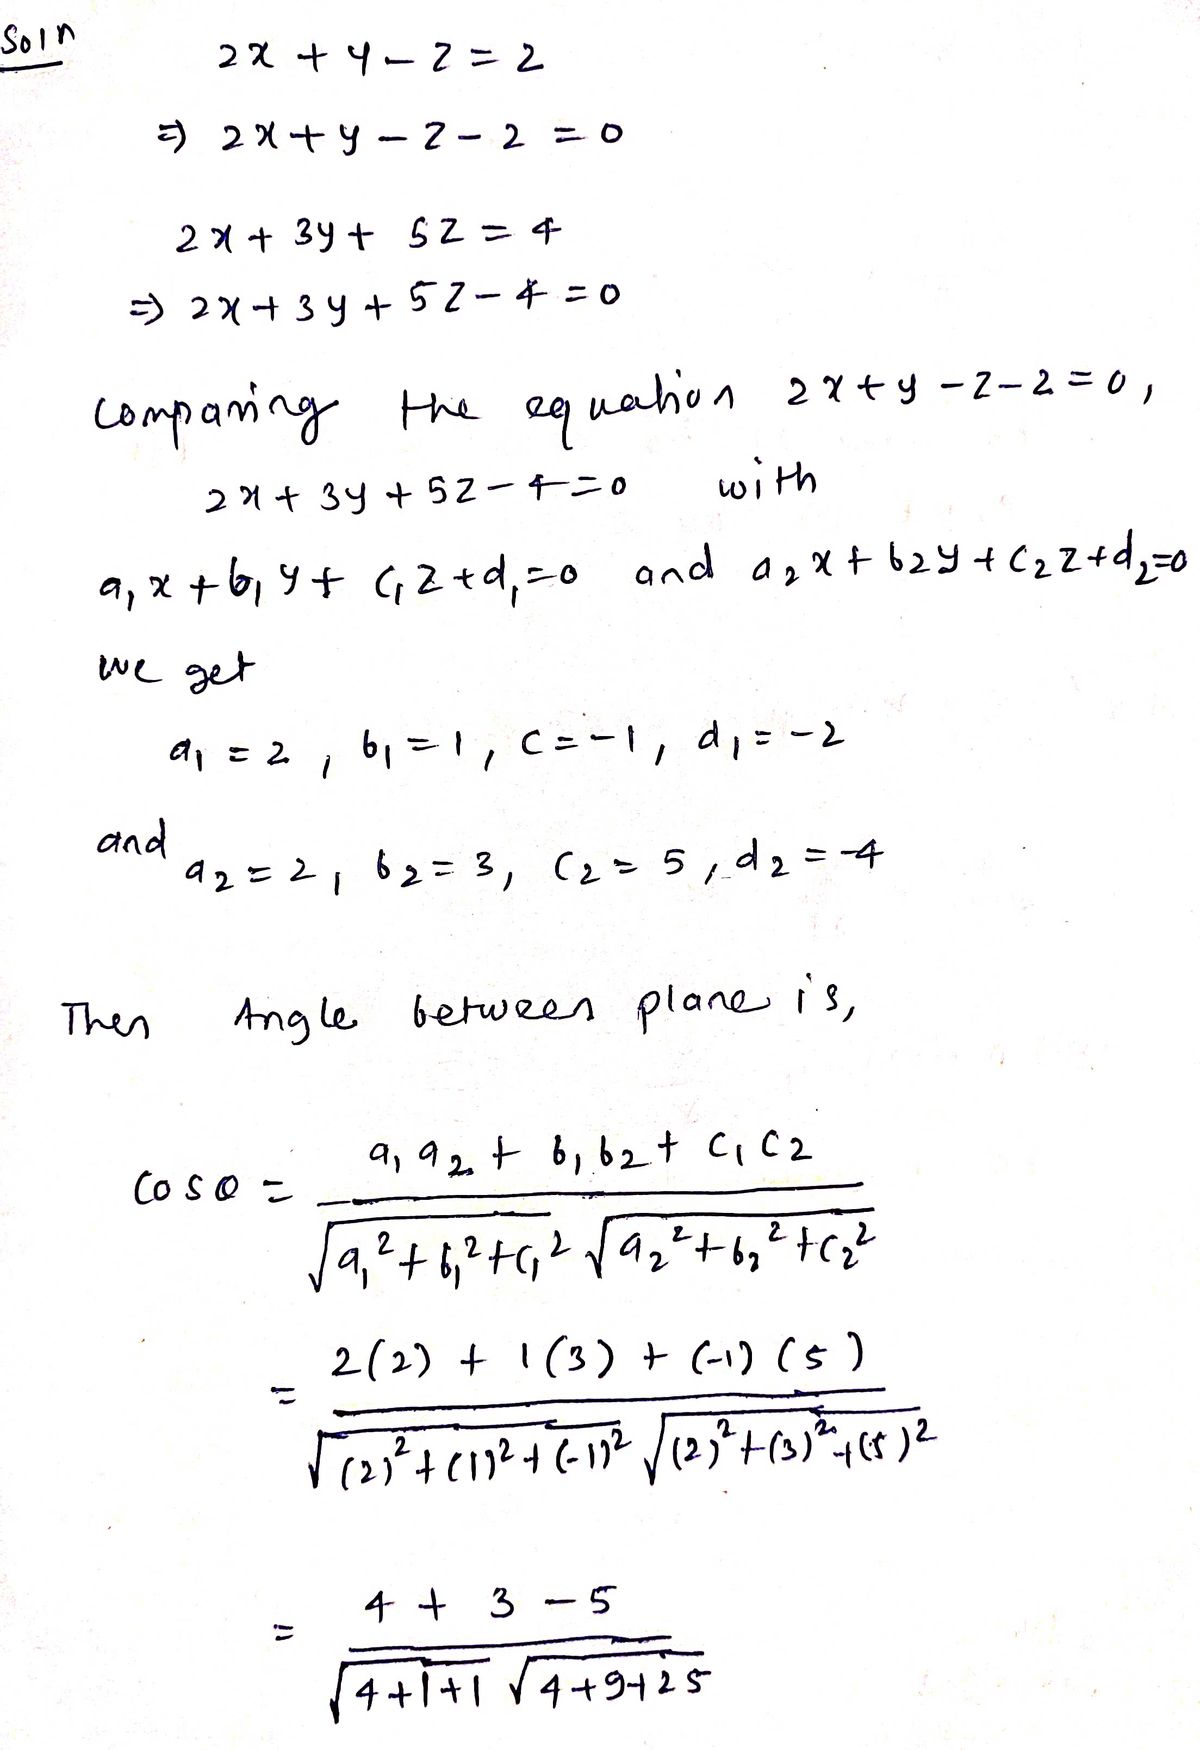 Soln
2x + y - z = 2
⇒ 2x + y - z - 2 = 0
2x + 3y + 5z = 4
⇒ 2x + 3y + 5z - 4 = 0
Comparing the equation 2x + y - z - 2 = 0,
2x + 3y + 5z - 4 = 0 with
a₁x + b₁y + c₁z + d₁ = 0 and a₂x + b₂y + c₂z + d₂ = 0
we get
a₁ = 2, b₁ = 1, c = -1, d₁ = -2
and a₂ = 2, b₂ = 3, c₂ = 5, d₂ = -4
Then Angle between plane is,
cos θ = (a₁a₂ + b₁b₂ + c₁c₂) / (√(a₁² + b₁² + c₁²) √(a₂² + b₂² + c₂²))
= (2(2) + 1(3) + (-1)(5)) / (√((2)² + (1)² + (-1)²) √((2)² + (3)² + (5)²))
= (4 + 3 - 5) / (√(4+1+1) √(4+9+25))